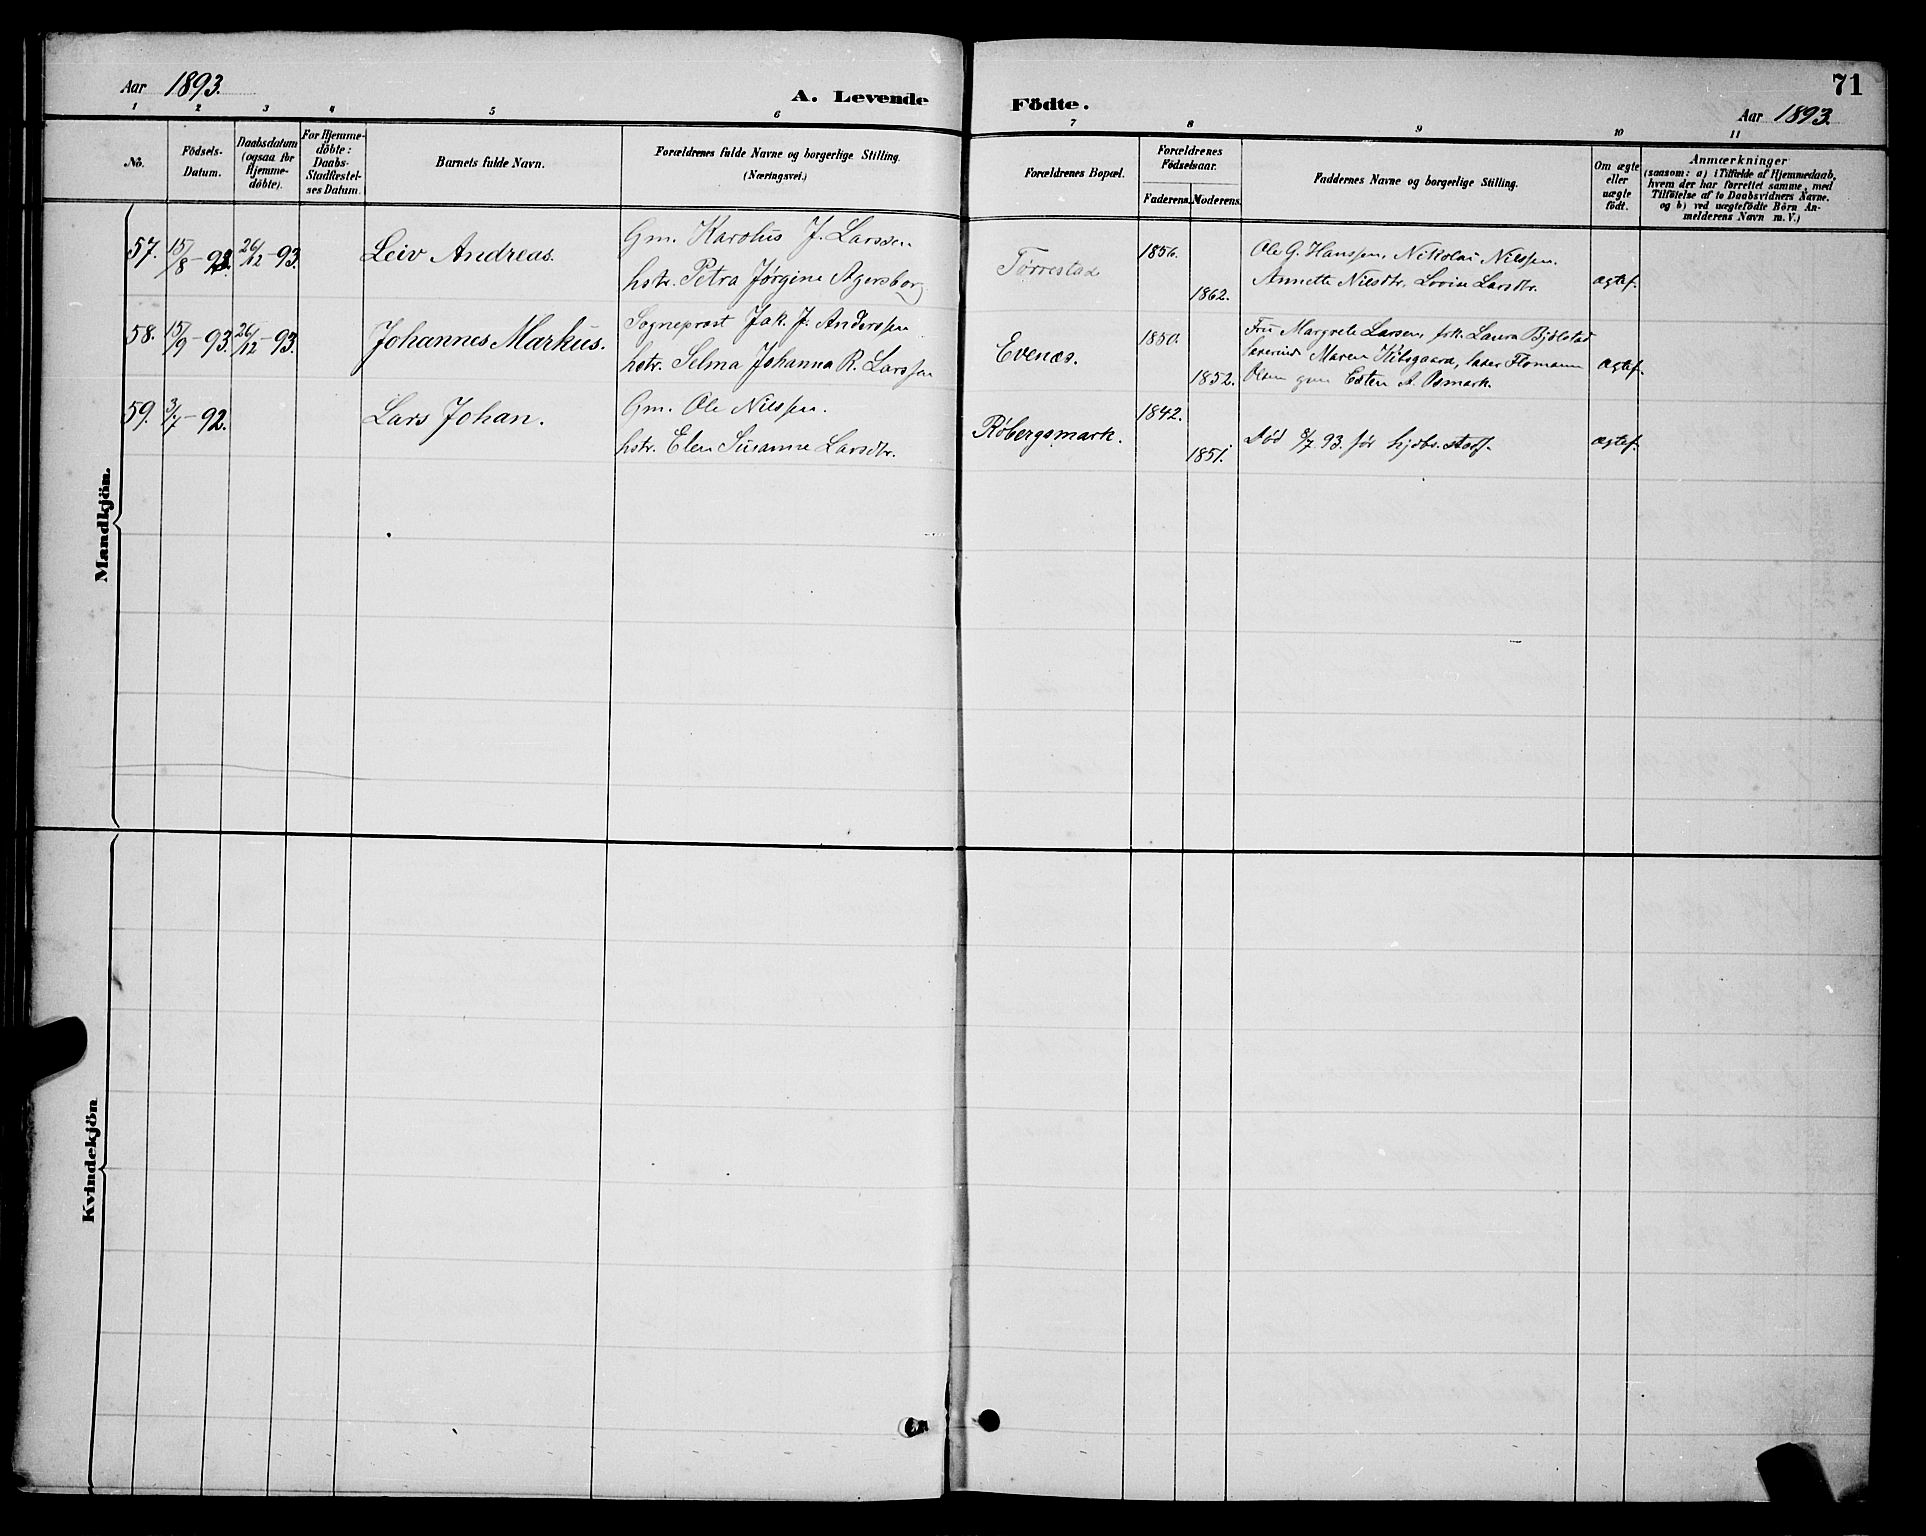 Aar 1893.
A. Levende Födte.
71
Aar 1893.
1 2 3 4 5 6 7 8 9 10 11
No.
Födsels-Datum.
Daabsdatum (ogsaa for Hjemme-döbte).
For Hjemme-döbte: Daabs-Stadfæstel-ses Datum.
Barnets fulde Navn.
Forældrenes fulde Navne og borgerlige Stilling.
(Næringsvei.)
Forældrenes Bopæl.
Forældrenes Födselsaar.
Faderens. Moderens.
Faddernes Navne og borgerlige Stilling.
Om ægte eller uægte födt.
Anmærkninger
(saasom: a) i Tilfælde af Hjemmedaab,
hvem der har forrettet samme, med
Tilföielse af to Daabsvidners Navne.
og b) ved uægtefödte Börn An-
melderens Navn m. V.)
Mandkjön.
57. 15/8-93. 26/12-93. Leiv Andreas.
Gm. Karolus J. Larssen
hstr. Petra Jørgine Agersborg
Tørrestad
1856.
1862.
Ole G. Hanssen, Nikolai Nilssen.
Annette Nilsdtr. Lovise Larsdtr.
ægtef.
58. 15/9-93. 26/12-93. Johannes Markus.
Sogneprost Jak. J. Anderssen
hstr. Selma Johanna R. Larssen
Evenæs.
1850.
1852.
Fru Margrete Larsen, frk. Laura Bjölstad
Maren Kibsgaard,
Olsen gm Esten A. Osmark.
ægtef.
59. 3/7-92. Lars Johan.
Gm. Ole Nilssen.
hstr. Elen Susanne Larsdtr.
Røbergsmark.
1842.
1851.
Död 8/7 93. før hjdbs. stadf.
ægtef.
Kvindekjön